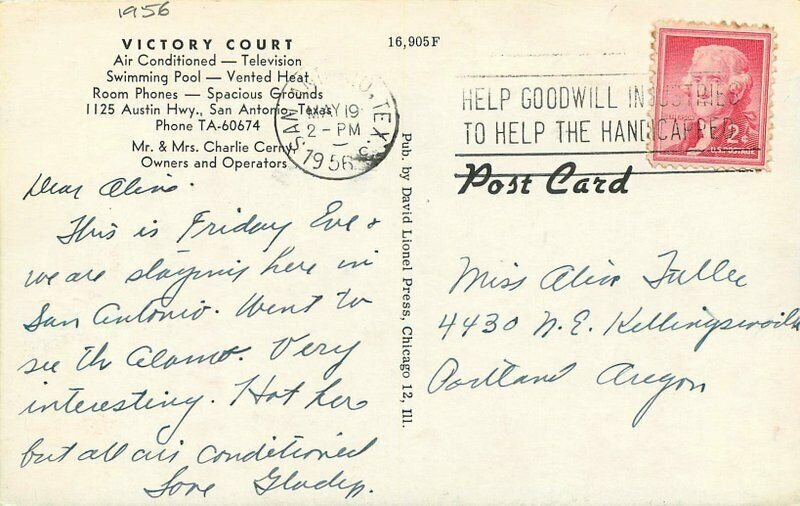 1956
VICTORY COURT
Air Conditioned — Television
Swimming Pool — Vented Heat
Room Phones — Spacious Grounds
1125 Austin Hwy., San Antonio, Texas
Phone TA-60674
Mr. & Mrs. Charlie Cerny
Owners and Operators
16,905F
SAN ANTONIO, TEX.
MAY 19
2 - PM
1956
HELP GOODWILL INDUSTRIES
TO HELP THE HANDICAPPED
2¢
U.S. POSTAGE
Post Card
Pub. by David Lionel Press, Chicago 12, Ill.
Dear Aline.
This is Friday Eve &
we are staying here in
San Antonio. Went to
see the Alamo. Very
interesting. Hot here
but all air conditioned
Love Gladys.
Miss Aline
4430 N.E. Killingsworth
Portland Oregon